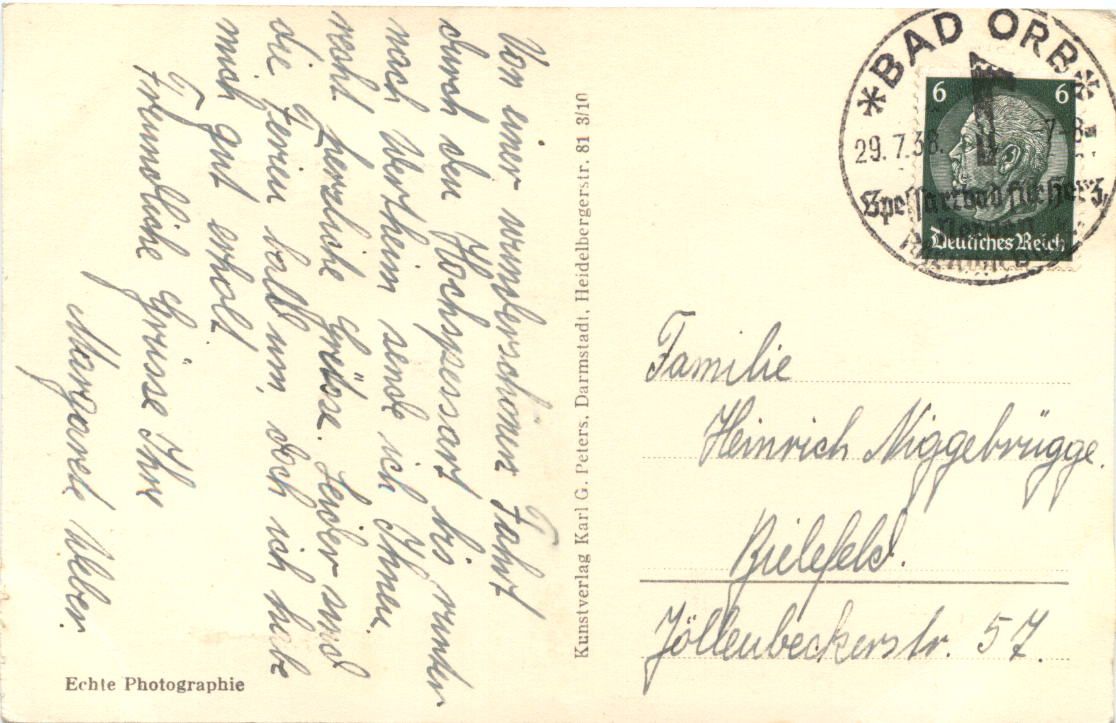 Von einer wunderschönen Fahrt
durch den Hochspessart bis runter
nach Wertheim sende ich Ihnen
recht herzliche Grüsse. Leider sind
die Ferien bald um, doch ich habe
mich gut erholt.
Freundliche Grüsse Ihre
Margarete Weber.
Echte Photographie
Kunstverlag Karl G. Peters, Darmstadt, Heidelbergerstr. 81 3/10
*BAD ORB*
29.7.38. 7-8
Spessartbad für Herz,
6 6
Deutsches Reich
Familie
Heinrich Niggebrügge.
Bielefeld.
Jöllenbeckerstr. 57.